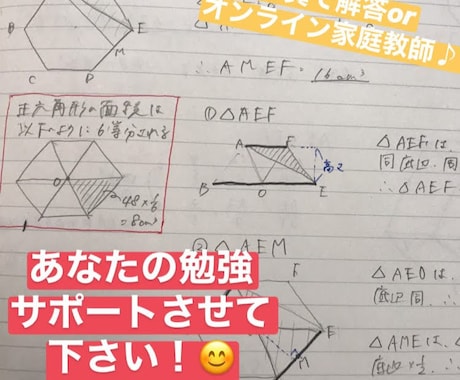 て解答or
オンライン家庭教師♪
B
E
M
C
D
∴ AMEF = 16cm²
正六角形の面積は
以下のように6等分される
O
48×1/6
=8cm²
① △AEF
A
F
高さ
B
O
E
△AEFは
同底辺、同
∴ △AEF
② △AEM
F
E
M
△AEOは、
底辺同
△AMEは、
底辺×1/2
あなたの勉強
サポートさせて
下さい！😊